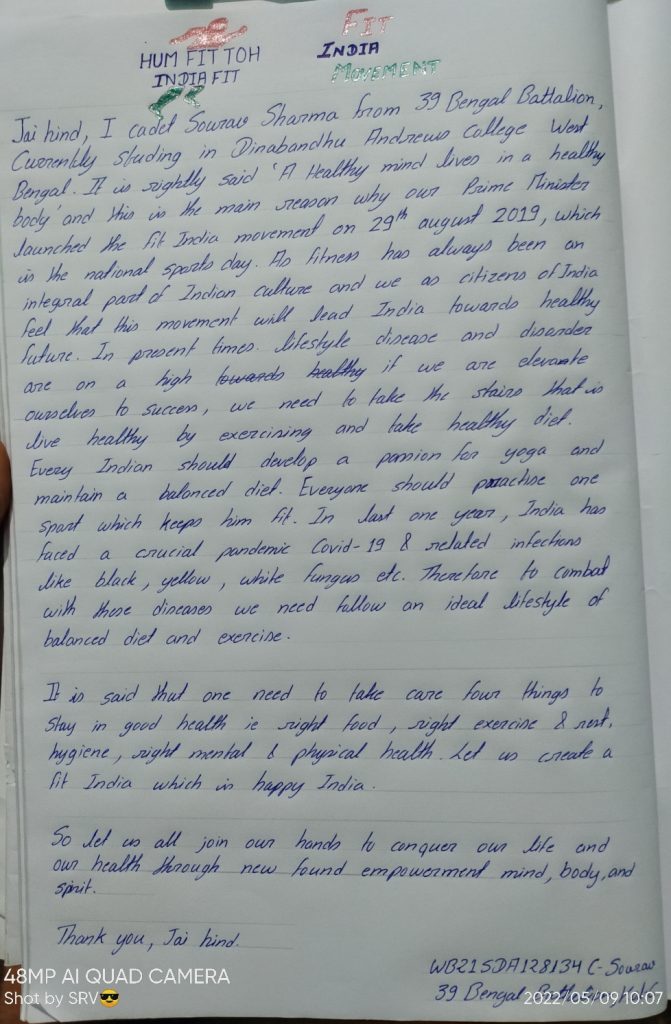 HUM FIT TOH
INDIA FIT
FIT
INDIA
MOVEMENT
Jai hind, I cadet Sourav Sharma from 39 Bengal Battalion,
Currently studing in Dinabandhu Andrews College West
Bengal. It is rightly said 'A Healthy mind lives in a healthy
body' and this is the main reason why our Prime Minister
launched the fit India movement on 29th august 2019, which
is the national sports day. As fitness has always been an
integral part of Indian culture and we as citizens of India
feel that this movement will lead India towards healthy
future. In present times. lifestyle disease and disorder
are on a high towards healthy if we are elevate
ourselves to success, we need to take the stairs that is
live healthy by exercising and take healthy diet.
Every Indian should develop a passion for yoga and
maintain a balanced diet. Everyone should practise one
sport which keeps him fit. In last one year, India has
faced a crucial pandemic Covid-19 & related infections
like black, yellow, white fungus etc. Therefore to combat
with these diseases we need follow an ideal lifestyle of
balanced diet and exercise.
It is said that one need to take care four things to
stay in good health ie right food, right exercise & rest,
hygiene, right mental & physical health. Let us create a
fit India which is happy India.
So let us all join our hands to conquer our life and
our health through new found empowerment mind, body, and
spirit.
Thank you, Jai hind.
WB21SDA128134 C-Sourav
39 Bengal Battalion,
48MP AI QUAD CAMERA
Shot by SRV😎
2022/05/09 10:07